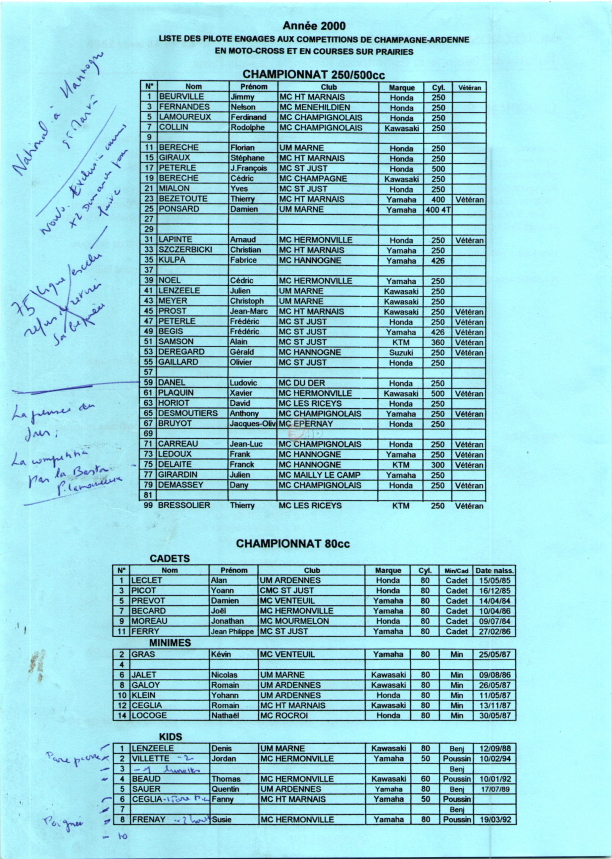 Année 2000
LISTE DES PILOTE ENGAGES AUX COMPETITIONS DE CHAMPAGNE-ARDENNE
EN MOTO-CROSS ET EN COURSES SUR PRAIRIES
CHAMPIONNAT 250/500cc
N° Nom Prénom Club Marque Cyl. Vétéran
1 BEURVILLE Jimmy MC HT MARNAIS Honda 250
3 FERNANDES Nelson MC MENEHILDIEN Honda 250
5 LAMOUREUX Ferdinand MC CHAMPIGNOLAIS Honda 250
7 COLLIN Rodolphe MC CHAMPIGNOLAIS Kawasaki 250
9
11 BERECHE Florian UM MARNE Honda 250
15 GIRAUX Stéphane MC HT MARNAIS Honda 250
17 PETERLE J.François MC ST JUST Honda 500
19 BERECHE Cédric MC CHAMPAGNE Kawasaki 250
21 MIALON Yves MC ST JUST Honda 250
23 BEZETOUTE Thierry MC HT MARNAIS Yamaha 400 Vétéran
25 PONSARD Damien UM MARNE Yamaha 400 4T
27
29
31 LAPINTE Arnaud MC HERMONVILLE Honda 250 Vétéran
33 SZCZERBICKI Christian MC HT MARNAIS Yamaha 250
35 KULPA Fabrice MC HANNOGNE Yamaha 426
37
39 NOEL Cédric MC HERMONVILLE Yamaha 250
41 LENZEELE Julien UM MARNE Kawasaki 250
43 MEYER Christoph UM MARNE Kawasaki 250
45 PROST Jean-Marc MC HT MARNAIS Kawasaki 250 Vétéran
47 PETERLE Frédéric MC ST JUST Honda 250 Vétéran
49 BEGIS Frédéric MC ST JUST Yamaha 426 Vétéran
51 SAMSON Alain MC ST JUST KTM 360 Vétéran
53 DEREGARD Gérald MC HANNOGNE Suzuki 250 Vétéran
55 GAILLARD Olivier MC ST JUST Honda 250
57
59 DANEL Ludovic MC DU DER Honda 250
61 PLAQUIN Xavier MC HERMONVILLE Kawasaki 500 Vétéran
63 HORIOT David MC LES RICEYS Honda 250
65 DESMOUTIERS Anthony MC CHAMPIGNOLAIS Yamaha 250 Vétéran
67 BRUYOT Jacques-Oliv MC EPERNAY Honda 250
69
71 CARREAU Jean-Luc MC CHAMPIGNOLAIS Honda 250 Vétéran
73 LEDOUX Frank MC HANNOGNE Yamaha 250 Vétéran
75 DELAITE Franck MC HANNOGNE KTM 300 Vétéran
77 GIRARDIN Julien MC MAILLY LE CAMP Yamaha 250
79 DEMASSEY Dany MC CHAMPIGNOLAIS Honda 250 Vétéran
81
99 BRESSOLIER Thierry MC LES RICEYS KTM 250 Vétéran
National à Hannogne
CHAMPIONNAT 80cc
CADETS
N° Nom Prénom Club Marque Cyl. Min/Cad Date naiss.
1 LECLET Alan UM ARDENNES Honda 80 Cadet 15/05/85
3 PICOT Yoann CMC ST JUST Honda 80 Cadet 16/12/85
5 PREVOT Damien MC VENTEUIL Yamaha 80 Cadet 14/04/84
7 BECARD Joël MC HERMONVILLE Yamaha 80 Cadet 10/04/86
9 MOREAU Jonathan MC MOURMELON Honda 80 Cadet 09/07/84
11 FERRY Jean Philippe MC ST JUST Yamaha 80 Cadet 27/02/86
MINIMES
2 GRAS Kévin MC VENTEUIL Yamaha 80 Min 25/05/87
4
6 JALET Nicolas UM MARNE Kawasaki 80 Min 09/08/86
8 GALOY Romain UM ARDENNES Kawasaki 80 Min 26/05/87
10 KLEIN Yohann UM ARDENNES Honda 80 Min 11/05/87
12 CEGLIA Romain MC HT MARNAIS Kawasaki 80 Min 13/11/87
14 LOCOGE Nathaël MC ROCROI Honda 80 Min 30/05/87
KIDS
1 LENZEELE Denis UM MARNE Kawasaki 80 Benj 12/09/88
2 VILLETTE -2 Jordan MC HERMONVILLE Yamaha 50 Poussin 10/02/94
3 Benj
4 BEAUD Thomas MC HERMONVILLE Kawasaki 60 Poussin 10/01/92
5 SAUER Quentin UM ARDENNES Yamaha 80 Benj 17/07/89
6 CEGLIA Fanny MC HT MARNAIS Yamaha 50 Poussin
7 Benj
8 FRENAY Susie MC HERMONVILLE Yamaha 80 Poussin 19/03/92
10